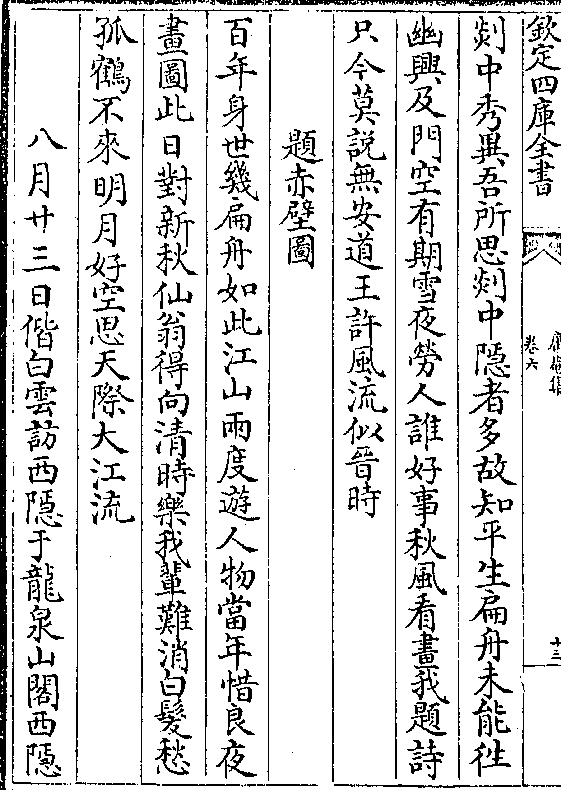 欽定四庫全書
卷六
十三
剡中秀異吾所思剡中隠者多故知平生扁舟未能徃
幽興及門空有期雪夜勞人誰好事秋風看畫我題詩
只今莫說無安道王許風流似晉時
題赤壁圖
百年身世幾扁舟如此江山兩度遊人物當年惜良夜
畫圖此日對新秋仙翁得向清時樂我輩難消白髮愁
孤鶴不來明月好空思天際大江流
八月廿三日偕白雲訪西隱于龍泉山閣西隱